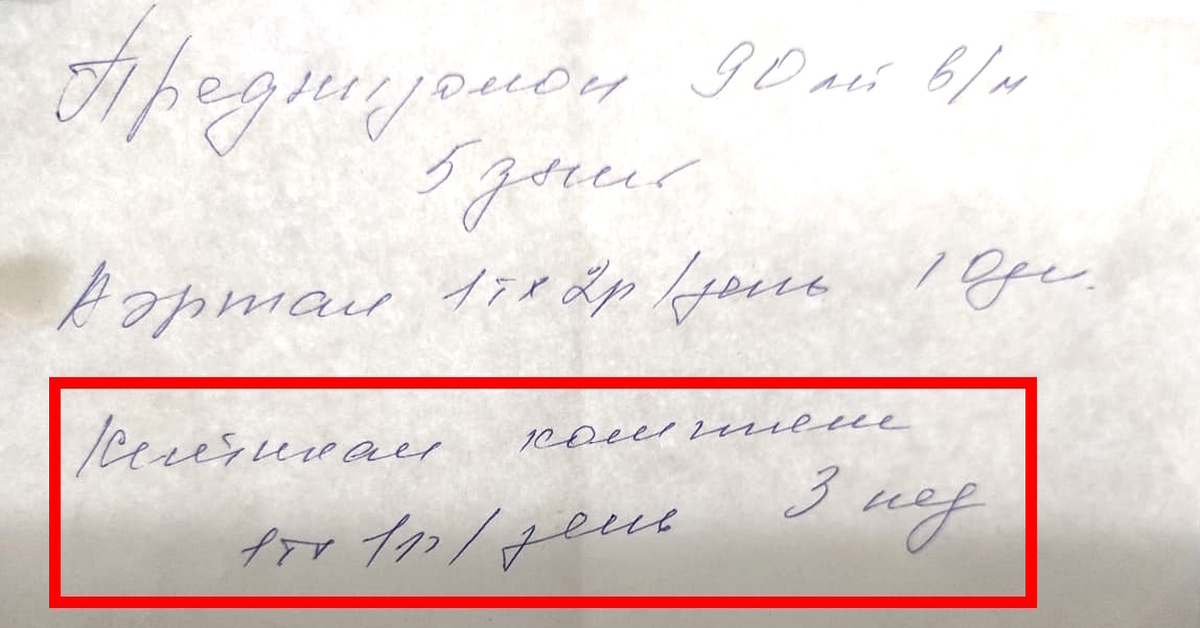 Преднизолон 90мг в/м
5 дней
Аэртал 1т x 2р/день 10дн.
комплекс
1т x 1р/день 3 нед